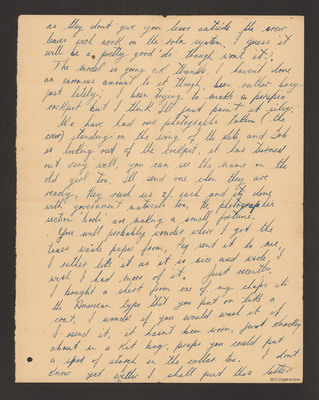 as they don't give you leave outside the crew
leaves each work on the rota system, I guess it
will be a pretty good 'do' though won't it?
The model is going O.K thanks, I haven't done
an enormous amount to it though, been rather busy
just lately, I been trying to make a perspex
cockpit but I think I'll just paint it silver.
We have had our photographs taken (the
crew) standing on the wing of the kite and Bob
is looking out of the cockpit, it has turned
out very well, you can see the name on the
old girl too, I'll send one when they are
ready, they rush us 2/- each and its done
with government materials too, the photographic
section 'bods' are making a small fortune.
You will probably wonder where I got the
waste paper from, they sent it to me,
I rather like it as it is nice and wide, I
wish I had more of it. Just recently
I bought a shirt from one of my chaps it's
the American type that you put on like a
coat, I wonder if you would want it if
I send it, it hasn't been worn, just knocking
about in a kit bag, praps you could put
a spot of starch in the collar too. I don't
know yet whether I shall post this letter
IBCC Digital Archive